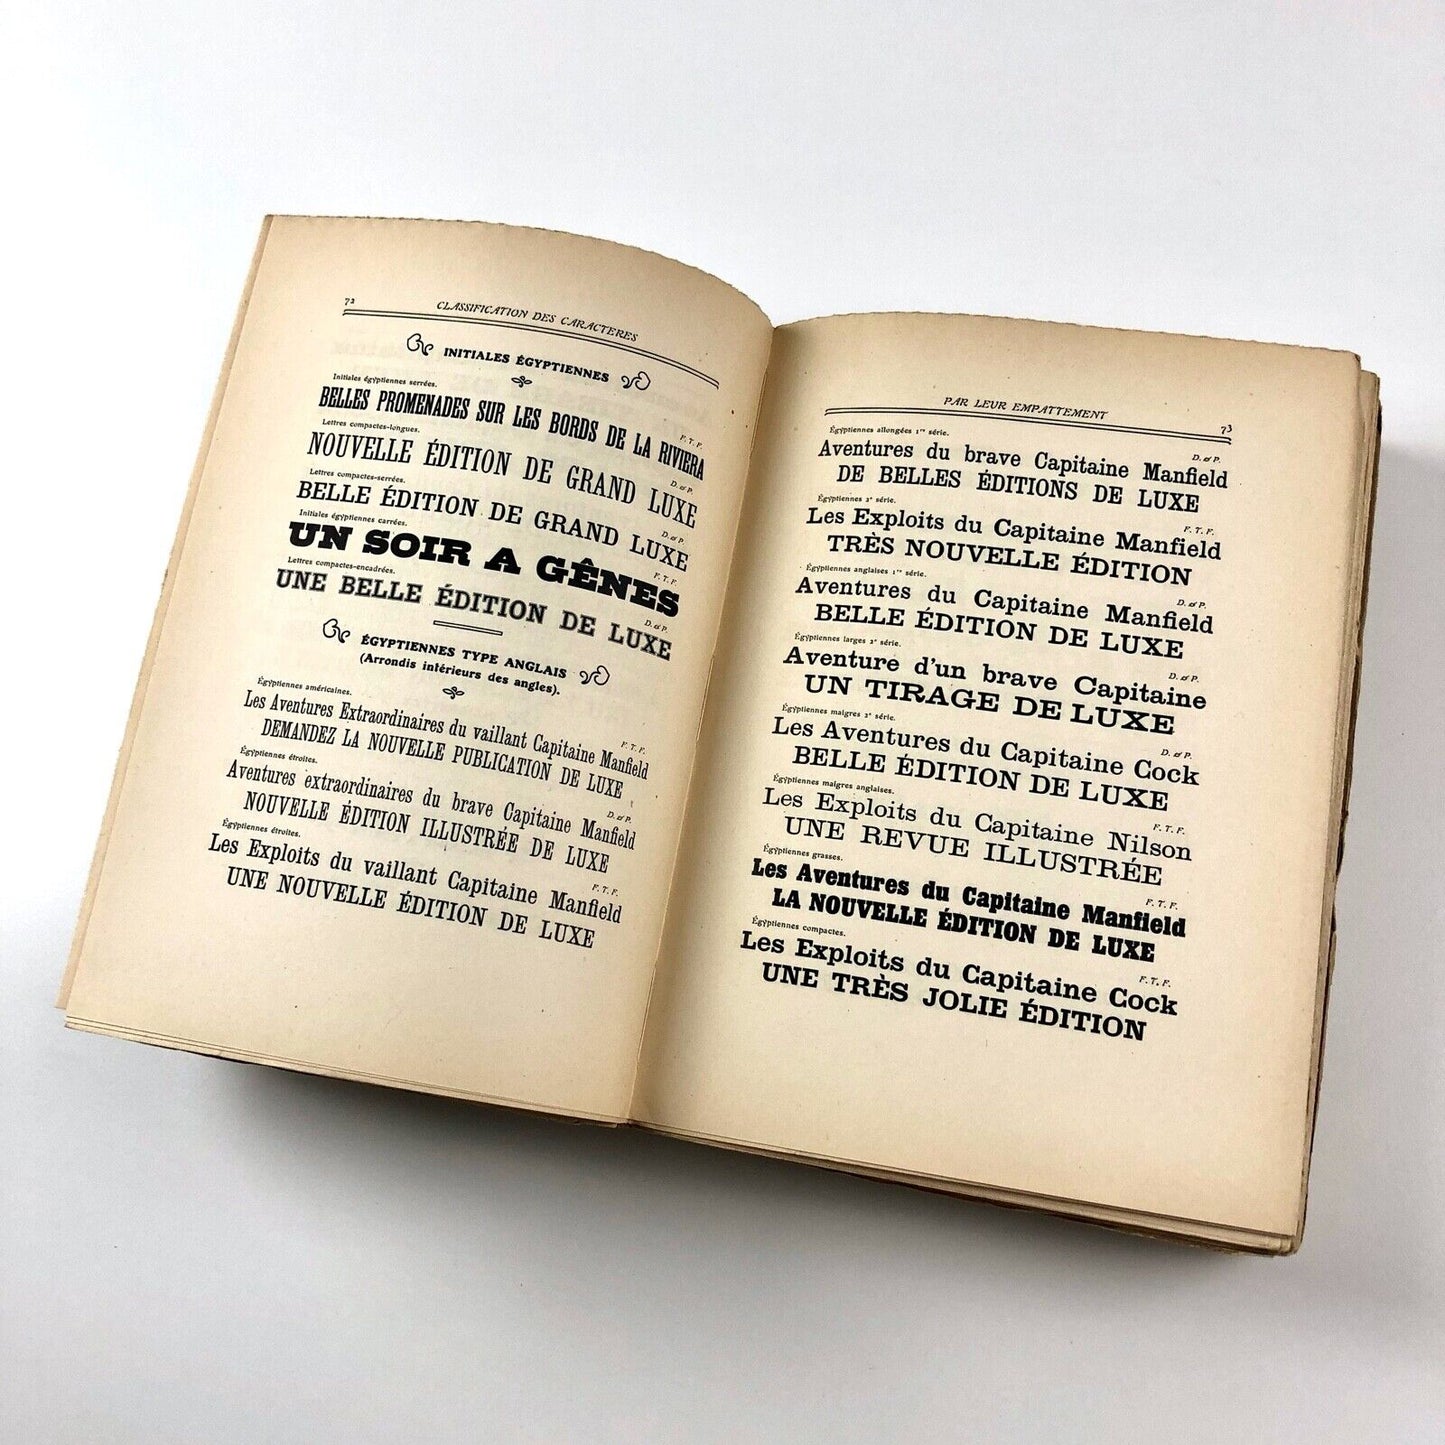 72
CLASSIFICATION DES CARACTERES
INITIALES ÉGYPTIENNES
Initiales égyptiennes serrées.
F. T. F.
BELLES PROMENADES SUR LES BORDS DE LA RIVIERA
Lettres compactes-longues.
D. & P.
NOUVELLE ÉDITION DE GRAND LUXE
Lettres compactes-serrées.
D. & P.
BELLE ÉDITION DE GRAND LUXE
Initiales égyptiennes carrées.
F. T. F.
UN SOIR A GÊNES
Lettres compactes-encadrées.
D. & P.
UNE BELLE ÉDITION DE LUXE
ÉGYPTIENNES TYPE ANGLAIS
(Arrondis intérieurs des angles).
Égyptiennes américaines.
F. T. F.
Les Aventures Extraordinaires du vaillant Capitaine Manfield
DEMANDEZ LA NOUVELLE PUBLICATION DE LUXE
Égyptiennes étroites.
D. & P.
Aventures extraordinaires du brave Capitaine Manfield
NOUVELLE ÉDITION ILLUSTRÉE DE LUXE
Égyptiennes étroites.
F. T. F.
Les Exploits du vaillant Capitaine Manfield
UNE NOUVELLE ÉDITION DE LUXE
PAR LEUR EMPATTEMENT
73
Égyptiennes allongées 1re série.
D. & P.
Aventures du brave Capitaine Manfield
DE BELLES ÉDITIONS DE LUXE
Égyptiennes 2e série.
F. T. F.
Les Exploits du Capitaine Manfield
TRÈS NOUVELLE ÉDITION
Égyptiennes anglaises 1re série.
D. & P.
Aventures du Capitaine Manfield
BELLE ÉDITION DE LUXE
Égyptiennes larges 2e série.
D. & P.
Aventure d'un brave Capitaine
UN TIRAGE DE LUXE
Égyptiennes maigres 2e série.
D. & P.
Les Aventures du Capitaine Cock
BELLE ÉDITION DE LUXE
Égyptiennes maigres anglaises.
F. T. F.
Les Exploits du Capitaine Nilson
UNE REVUE ILLUSTRÉE
Égyptiennes grasses.
F. T. F.
Les Aventures du Capitaine Manfield
LA NOUVELLE ÉDITION DE LUXE
Égyptiennes compactes.
F. T. F.
Les Exploits du Capitaine Cock
UNE TRÈS JOLIE ÉDITION